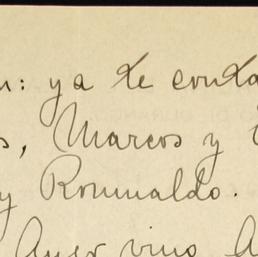 : ya te conta
, Marcos y
y Romualdo.
Ayer vino A